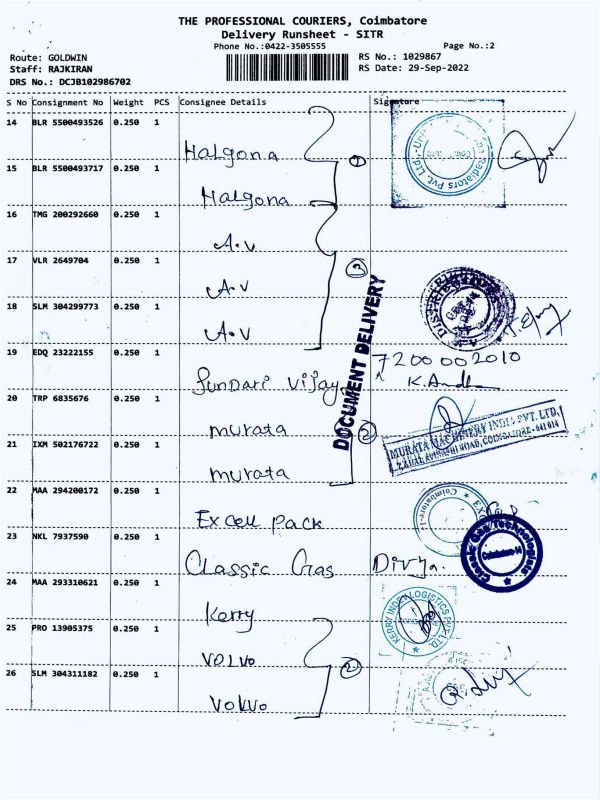 THE PROFESSIONAL COURIERS, Coimbatore
Delivery Runsheet - SITR
Phone No.:0422-3505555
Page No.:2
Route: GOLDWIN
RS No.: 1029867
Staff: RAJKIRAN
RS Date: 29-Sep-2022
DRS No.: DCJB102986702
S No Consignment No Weight PCS Consignee Details Signature
14 BLR 5500493526 0.250 1
Halgona
①
Radiators Pvt. Ltd.
15 BLR 5500493717 0.250 1
Halgona
16 TMG 200292660 0.250 1
A.V
17 VLR 2649704 0.250 1
A.V
③
18 SLM 304299773 0.250 1
A.V
DOCUMENT DELIVERY
19 EDQ 23222155 0.250 1
Sundari Vijay
7200002010
20 TRP 6835676 0.250 1
murata
②
MURATA MACHINERY INDIA PVT. LTD.
AVINASHI ROAD, COIMBATORE - 641 014
21 IXM 502176722 0.250 1
murata
22 MAA 294200172 0.250 1
Excell pack
Coimbatore
23 NKL 7937590 0.250 1
Classic Gas
Divya.
Classic Gas Technologists
Coimbatore-14
24 MAA 293310621 0.250 1
Kerry
KERRY INDEV LOGISTICS PVT LTD.
25 PRO 13905375 0.250 1
VOLVO
②
26 SLM 304311182 0.250 1
VOLVO